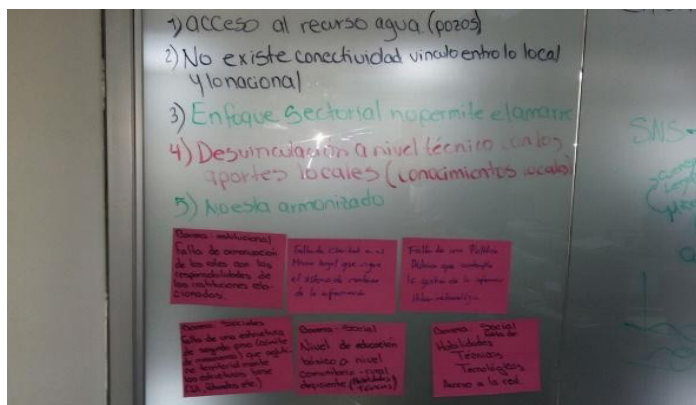 1) acceso al recurso agua (pozos)
2) No existe conectividad vinculo entre lo local
y lo nacional
3) Enfoque Sectorial no permite el amarre
4) Desvinculación a nivel técnico con los
aportes locales (conocimientos locales)
5) No esta armonizado
Barrera: institucional
Falta de armonización
de los roles con las
responsabilidades de
las instituciones rela-
cionadas.
Falta de claridad en el
Marco legal que rige
el sistema de
de la información
Falta de una Política
Pública que contemple
la gestión de la información
Barrera: Sociales
Falta de una estructura
de segundo piso (comité
de ) que
territorialmente
las estructuras base
Barrera: Social
Nivel de educación
básico a nivel
comunitario - rural
deficiente (Habilidades
Técnicas)
Barrera: Social
Falta de
Habilidades
Técnicas
Tecnológicas
Acceso a la red.
SNS